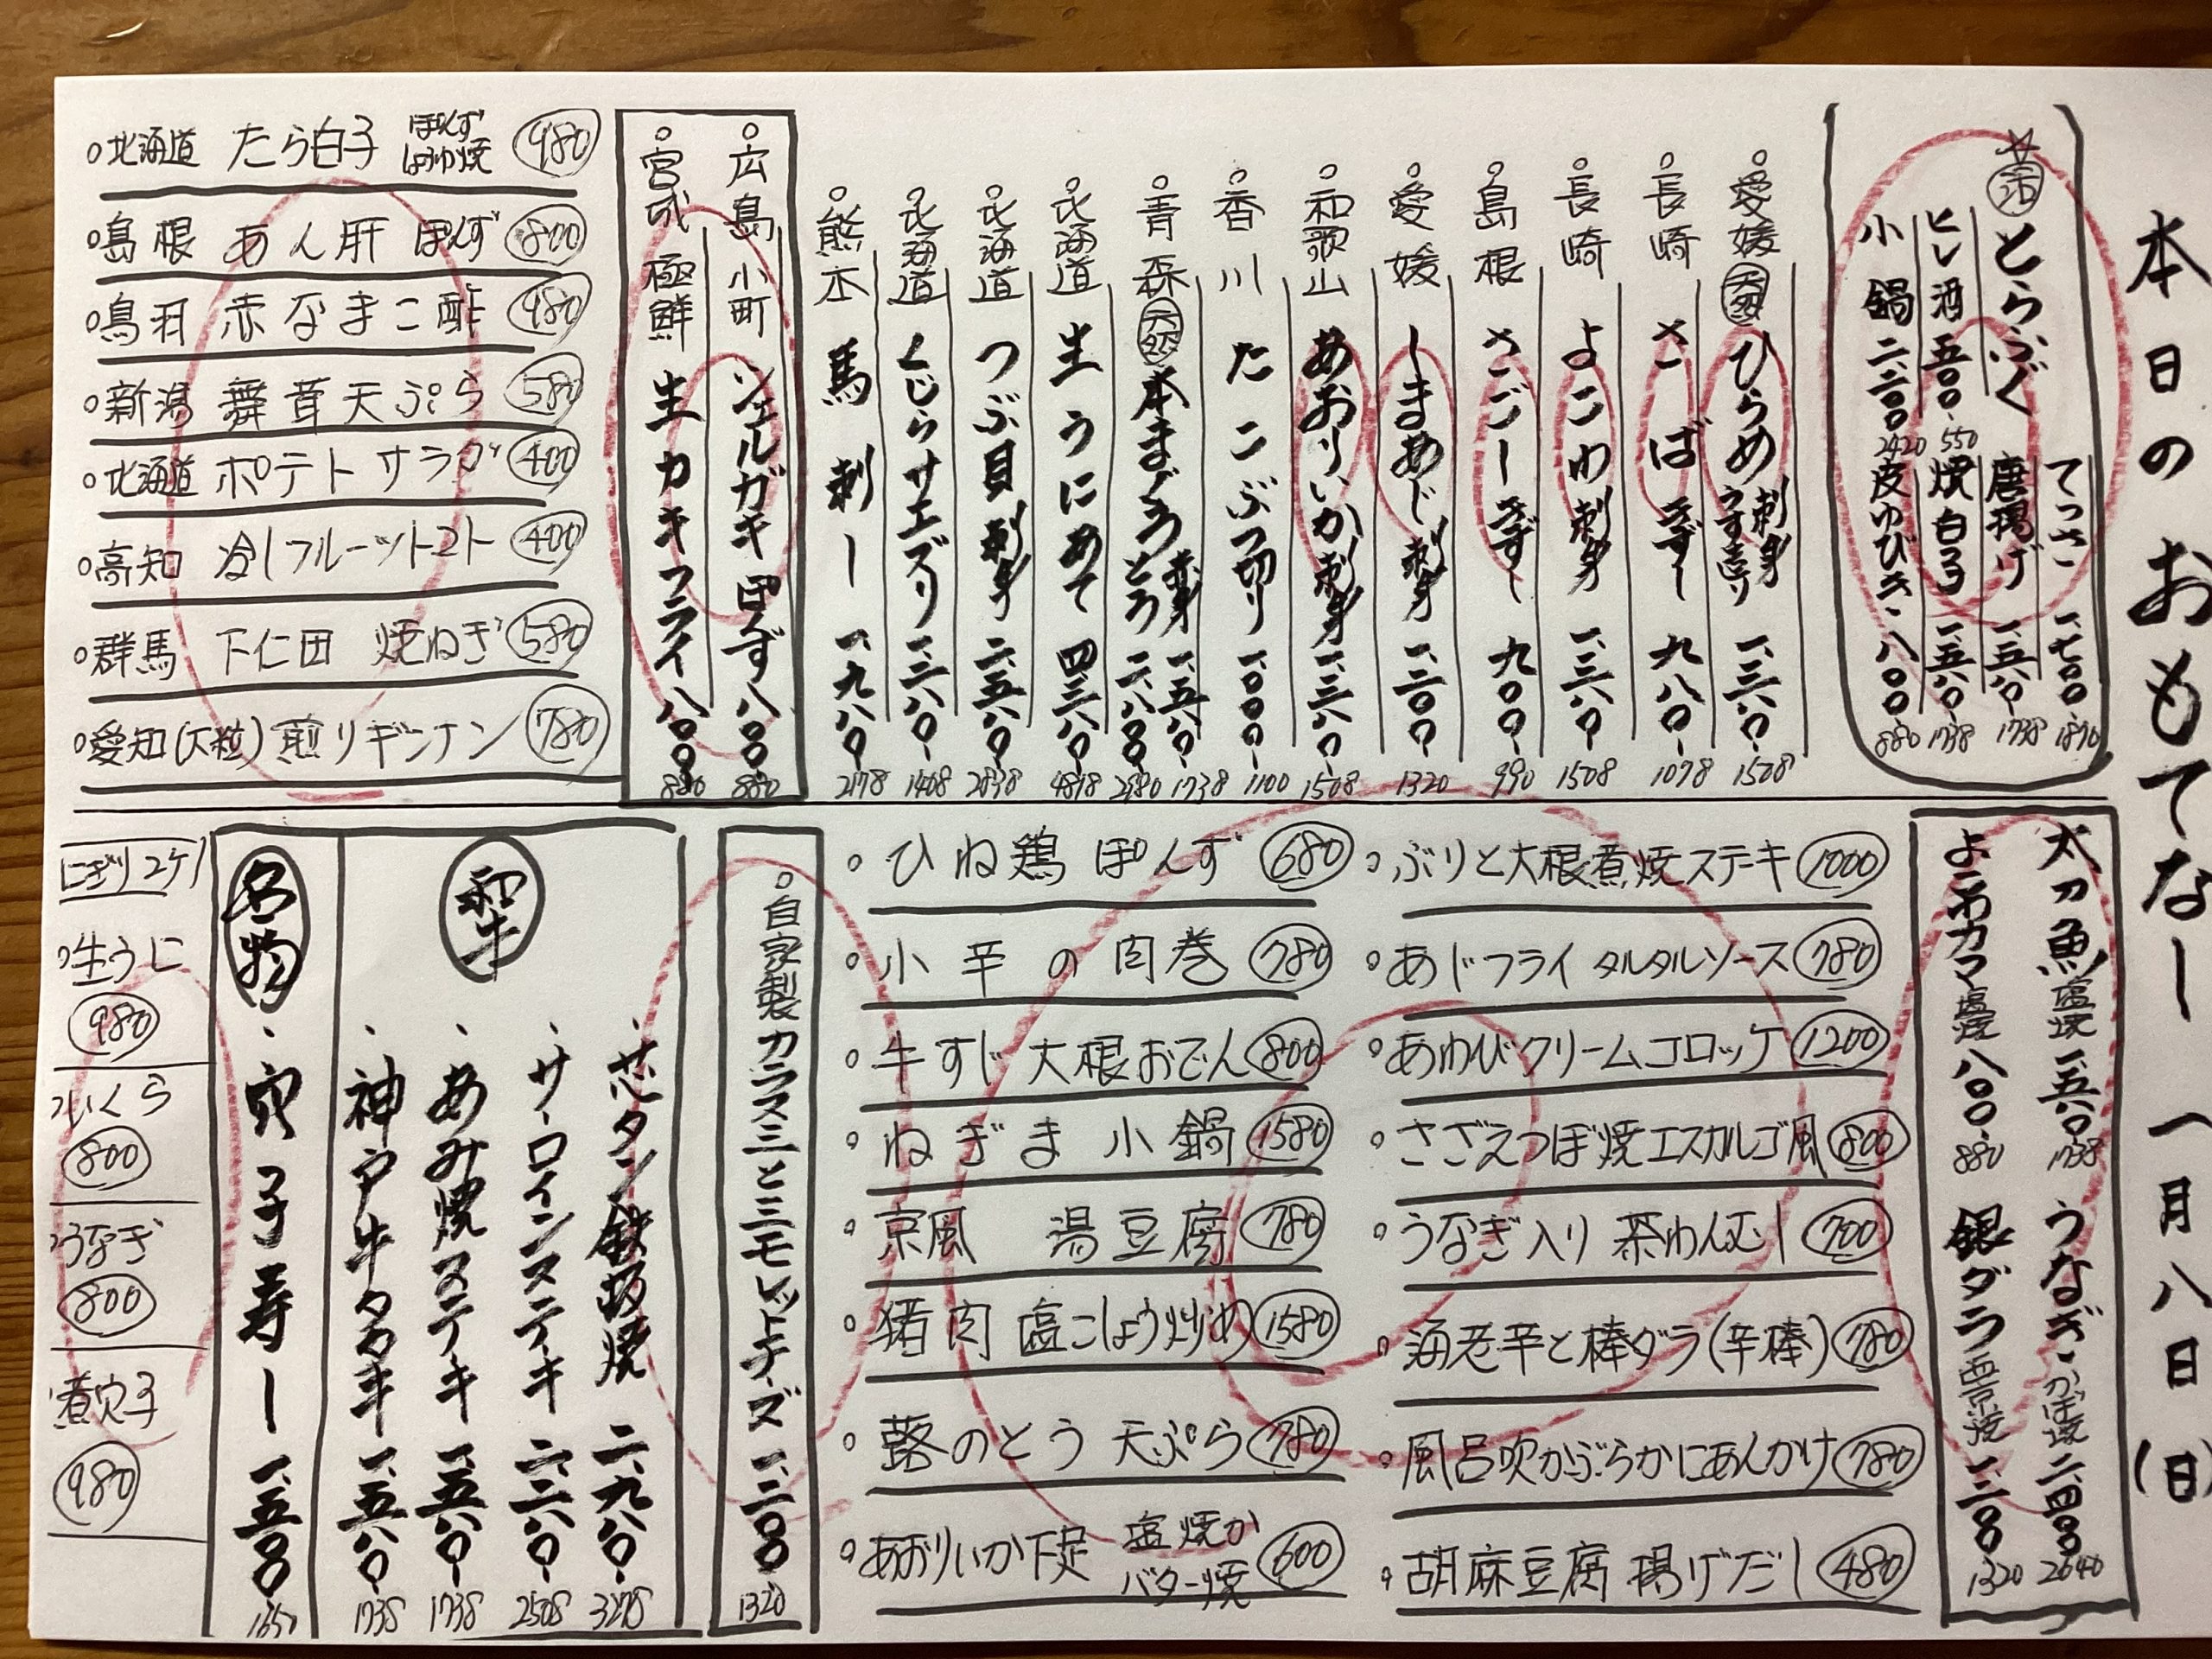 本日のおもてなし 一月八日(日)
☆ とらふぐ
てっさ 一、七〇〇 1870
唐揚げ 一、五八〇 1738
ヒレ酒 五〇〇 550
焼白子 一、五八〇 1738
小鍋 二、二〇〇 2420
皮ゆびき 八〇〇 880
愛媛 天然 ひらめ 刺身 うす造り 一、三八〇 1508
長崎 さば きずし 九八〇 1078
長崎 よこわ 刺身 一、三八〇 1508
島根 さごし きずし 九〇〇 990
愛媛 しまあじ 刺身 一、二〇〇 1320
和歌山 あおりいか 刺身 一、三八〇 1508
香川 たこぶつ切り 一、〇〇〇 1100
青森 天然 本まぐろ
赤身 一、五八〇 1738
とろ 二、八〇〇 2980
北海道 生うにあて 四、三八〇 4818
北海道 つぶ貝 刺身 二、五八〇 2838
北海道 くじらサエズリ 一、二八〇 1408
熊本 馬刺し 一、九八〇 2178
広島 小町 シェルガキ ぽんず 八〇〇 880
宮城 極鮮 生カキフライ 八〇〇 880
北海道 たら白子 ぽんず しょうゆ焼 980
島根 あん肝 ぽんず 800
鳥羽 赤なまこ酢 980
新潟 舞茸天ぷら 580
北海道 ポテトサラダ 400
高知 冷しフルーツトマト 400
群馬 下仁田 焼ねぎ 580
愛知(大粒) 煎りギンナン 780
太刀魚 塩焼 一、五八〇 1738
うなぎ かば焼 二、四〇〇 2640
よこわカマ 塩焼 八〇〇 880
銀ダラ 西京焼 一、二〇〇 1320
ぶりと大根煮焼ステーキ 1000
あじフライ タルタルソース 780
あわびクリームコロッケ 1200
さざえつぼ焼エスカルゴ風 800
うなぎ入り 茶わんむし 700
海老芋と棒ダラ(芋棒) 780
風呂吹かぶらかにあんかけ 780
胡麻豆腐 揚げだし 480
ひね鶏 ぽんず 680
小芋の肉巻 780
牛すじ大根おでん 800
ねぎま小鍋 1580
京風 湯豆腐 780
猪肉 塩こしょう炒め 1580
蕗のとう 天ぷら 780
あおりいか下足 塩焼か バター焼 600
自家製 カラスミとミモレットチーズ 一、二〇〇 1320
和牛
芯タン鉄板焼 二、九八〇 3278
サーロインステーキ 二、二八〇 2508
あみ焼ステーキ 一、五八〇 1738
神戸牛タタキ 一、五八〇 1738
名物
穴子寿し 一、五〇〇 1650
にぎり2ケ
生うに 980
いくら 800
うなぎ 800
煮穴子 980